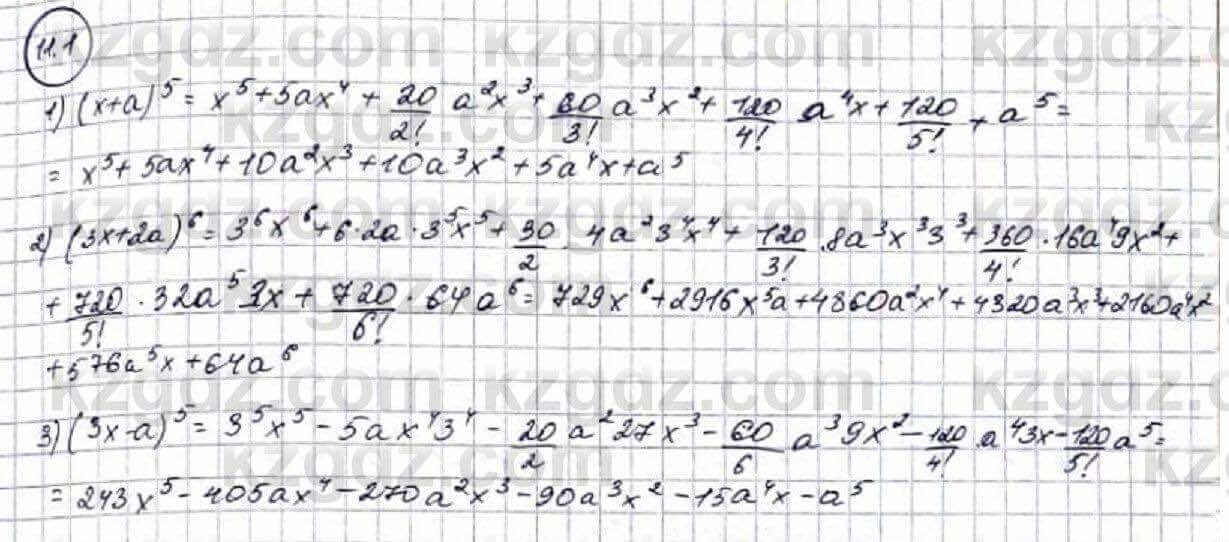 11.1
1) (x+a)^5 = x^5+5ax^4 + 20/2! a^2x^3 + 60/3! a^3x^2 + 120/4! a^4x + 120/5! + a^5 =
= x^5 + 5ax^4 + 10a^2x^3 + 10a^3x^2 + 5a^4x + a^5
2) (3x+2a)^6 = 3^6x^6 + 6·2a·3^5x^5 + 30/2 4a^2 3^4x^4 + 120/3! · 8a^3x^3 3^3 + 360/4! · 16a^4 9x^2 +
+ 720/5! · 32a^5 3x + 720/6! · 64a^6 = 729x^6 + 2916x^5a + 4860a^2x^4 + 4320a^3x^3 + 2160a^4x^2
+ 576a^5x + 64a^6
3) (3x-a)^5 = 3^5x^5 - 5ax^4 3^4 - 20/2 a^2 27x^3 - 60/6 a^3 9x^2 - 120/4! a^4 3x - 120/5! a^5 =
= 243x^5 - 405ax^4 - 270a^2x^3 - 90a^3x^2 - 15a^4x - a^5
kzgdz.com